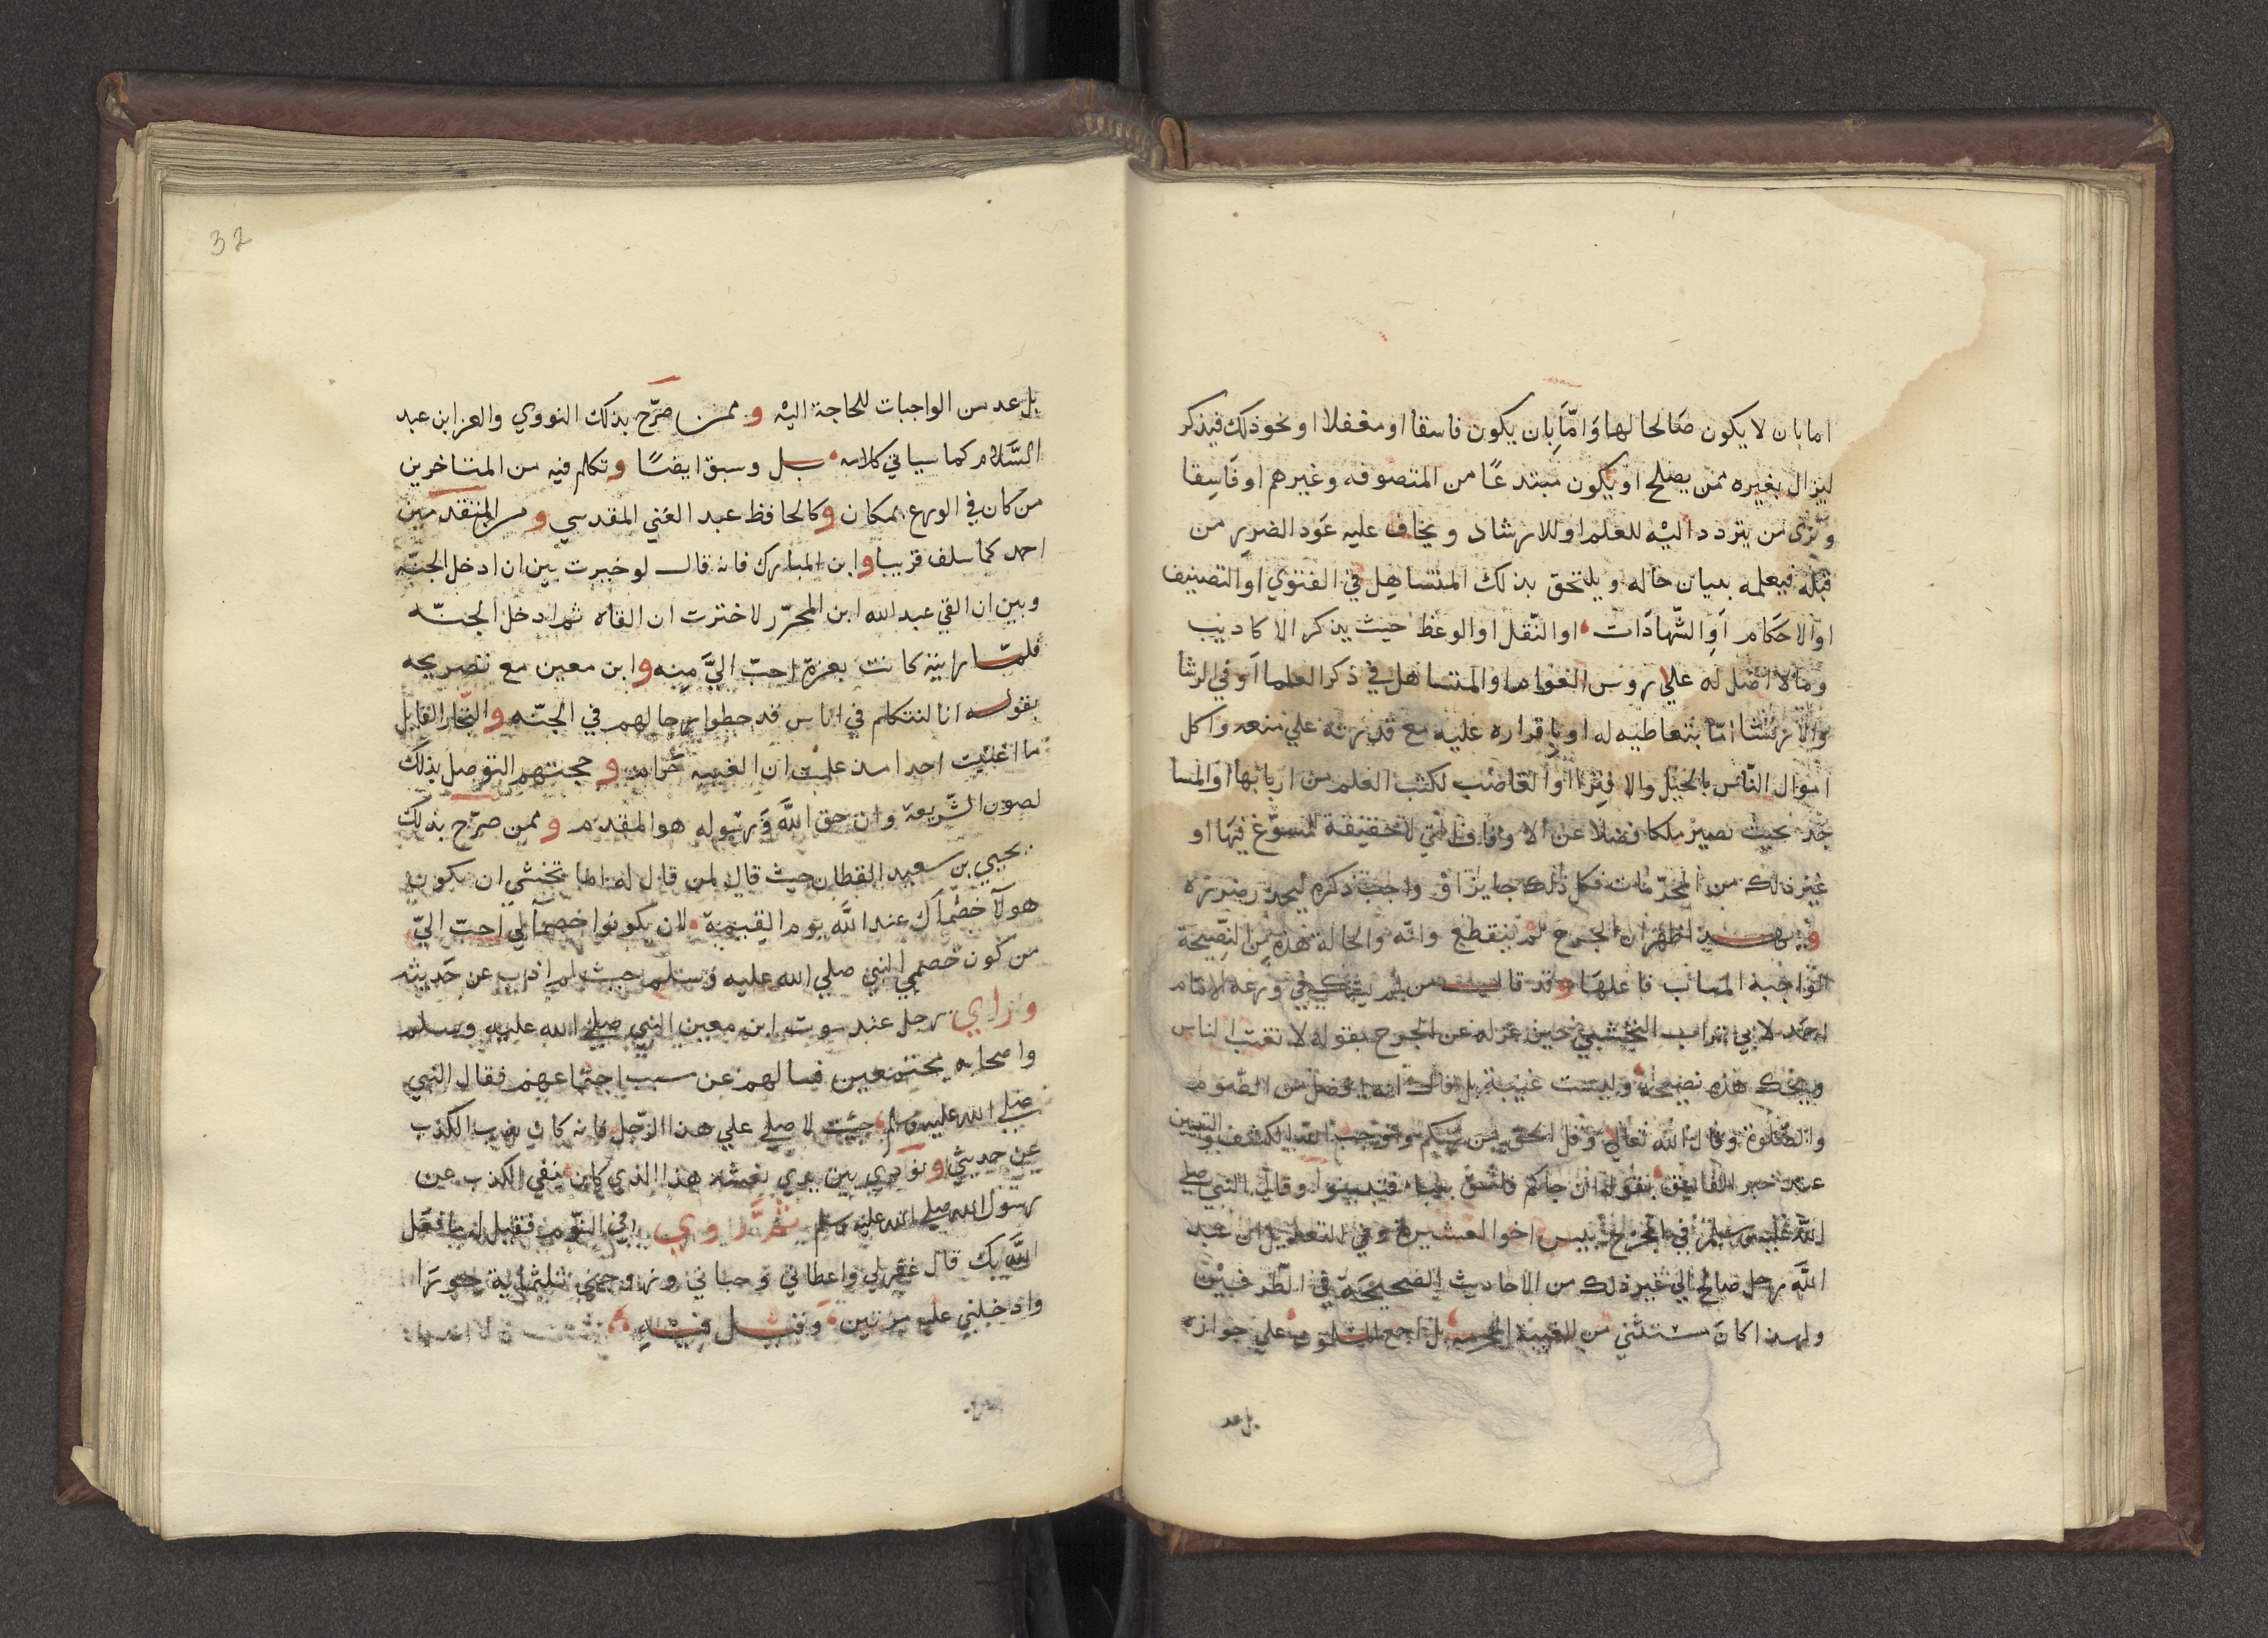 اما بان لا يكون صَالحا لها وَامّا بِان يكون فاسقا او مغفلا او نحو ذلك فيذكر
ليزال بغيره ممن يصلح او يكون مبتدعًا من المتصوفه وغيرهم او فَاسِقا
ويَرى من يتردد اليْه للعلم او للارشاد ويخاف عليه عَود الضرر من
قبله فيعلمه ببيان حاله ويلتحق بذلك المتساهِل في الفتوي او التصنيف
او الاحَكام اَوِ الشّهادَات او النّقل او الوعظ حيث يذكر الاكاديب
وما لا اصل له علي روس العَوام او المتساهل في ذكر العلما اَو في الرشا
والارتشا امّا بتعاطيه له او باقراره عليه مع قدرته علي منعه واكل
اموال النّاس بالحيل والافترا او الغاصب لكتب العلم من اربابها او المسا
جد بحيث تصير ملكا فضلا عن الاوقاف التي لا حقيقة لمسوّغ فيهَا او
غير ذلك من المحرّمات فكل ذلك جايز او واجب ذكره ليحذر ضرره
اظهر ان الجرح لم ينقطع وانّه والحالة هذه من النّصِيحَة
الوَاجبة المثاب فاعلهَا وقد قال من لم يشك في ورعه الامام
احمد لابي تراب النخشبي حين عزله عن الجرح بقوله لا تغتب الناس
ويحك هذه نصيحة وليست غيبة بل قال انه افضل من الصّوم
والصّلوة وقال اللّه تعالي وقل الحق من ربكم واوجب اللّه الكشف والتبيين
عند خبر الفاسق بقوله ان جاكم فاسق بنباء فتبينوا وقال النبي صلي
اللّه عليه وسلم في الجرح بيس اخو العشيرة وفي التعديل ان عبد
اللّه رجل صالح الي غير ذلك من الاحاديث الصحيحَة في الطّرفيْن
ولهذا كان مستثني من الغيبة المحرمه بل اجمع المسلمون علي جوازه
بل عد
32
بل عد من الواجبات للحاجة اليْه وممن صرّح بذلك النووي والعز ابن عبد
السَّلام كما سياتي كلامه بل وسبق ايضًا وتكلم فيه من المتاخرين
من كان في الورع بمكان وكالحافظ عبد الغَني المقدسي ومن المتقدمين
احمد كما سلف قريبا وابن المبارك فانه قال لو خيرت بين ان ادخل الجنّه
وبين ان القي عبد الله ابن المحرّر لاخترت ان القاه ثم ادخل الجنّه
فلمّا رايته كانت بعرة احبّ اليَّ مِنه وابن معين مع تصريحه
بقوله انا لنتكلم في اناس قد حطوا رحالهم في الجنّه والبخّار القايل
ما اغتبت احدا منذ علمت ان الغيبه حرام وحجتهم التوصّل بذلك
لصون الشّريعة وان حق اللّه وَرسوله هو المقدم وممن صرّح بذلك
يحيي بن سعيد القطان حيث قال لمن قال له اما تخشي ان يكون
هولآ خصماك عند اللّه يوم القيمة لان يكونوا خصمآ لي احبّ اليّ
من كون خصمي النبي صلي الله عليه وَسَلم حيث لم اذب عن حَديثه
وراي رجل عند موت ابن معين النبي صلي الله عليه وسلم
واصحابه مجتمعين فسالهم عن سبب اجتماعهم فقال النبي
صلي الله عليه وسلم جيت لاصلي علي هذا الرّجل فانه كان يذب الكذب
عن حديثي ونودي بين يدي نعشه هذا الذي كان ينفي الكذب عن
رسول الله صلي الله عليه وسلم ثمّ روي في النّوم فقيل له ما فعَل
اللّه بك قال غفر لي واعطاني وحباني وزوجني ثلثماية حورَا
وادخلني عليه مرتين وقيل فيْه